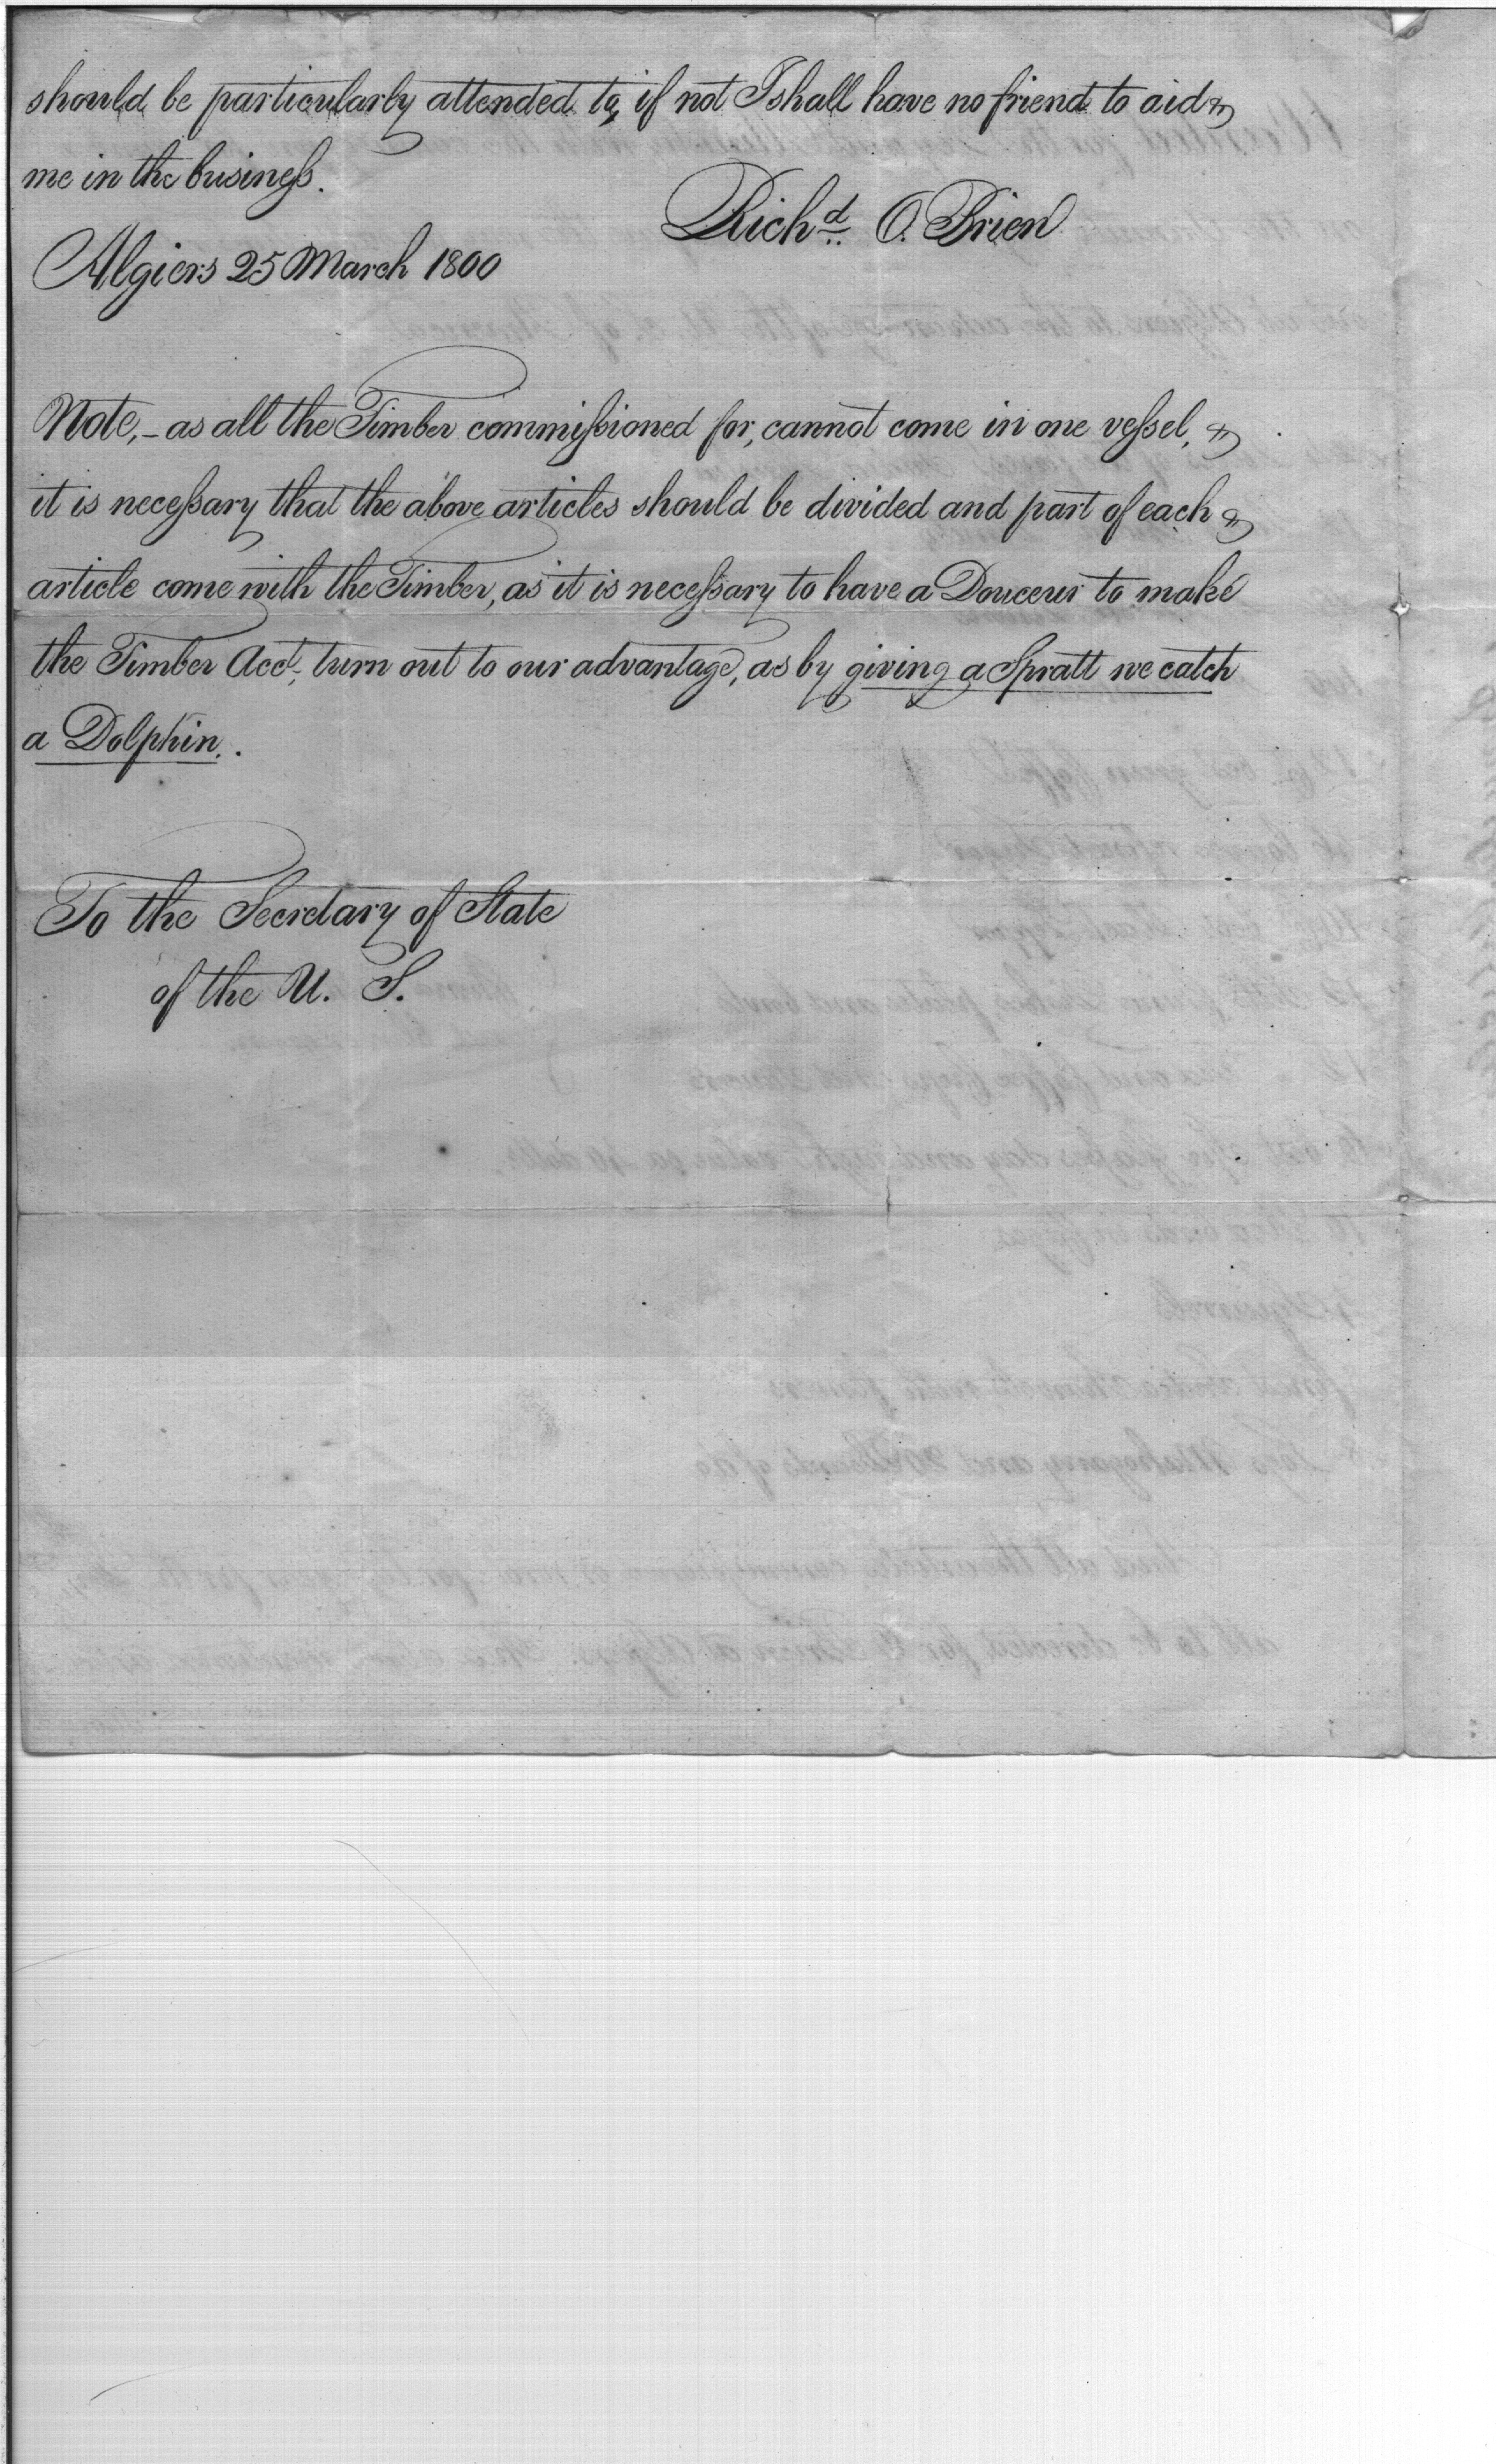 should be particularly attended to, if not I shall have no friend to aid &
me in the business.
Richd. O.Brien
Algiers 25 March 1800
Note,- as all the Timber commissioned for, cannot come in one vessel, &
it is necessary that the above articles should be divided and part of each &
article come with the Timber, as it is necessary to have a Douceur to make
the Timber Acct, turn out to our advantage, as by giving a Spratt we catch
a Dolphin.
To the Secretary of State
of the U. S.